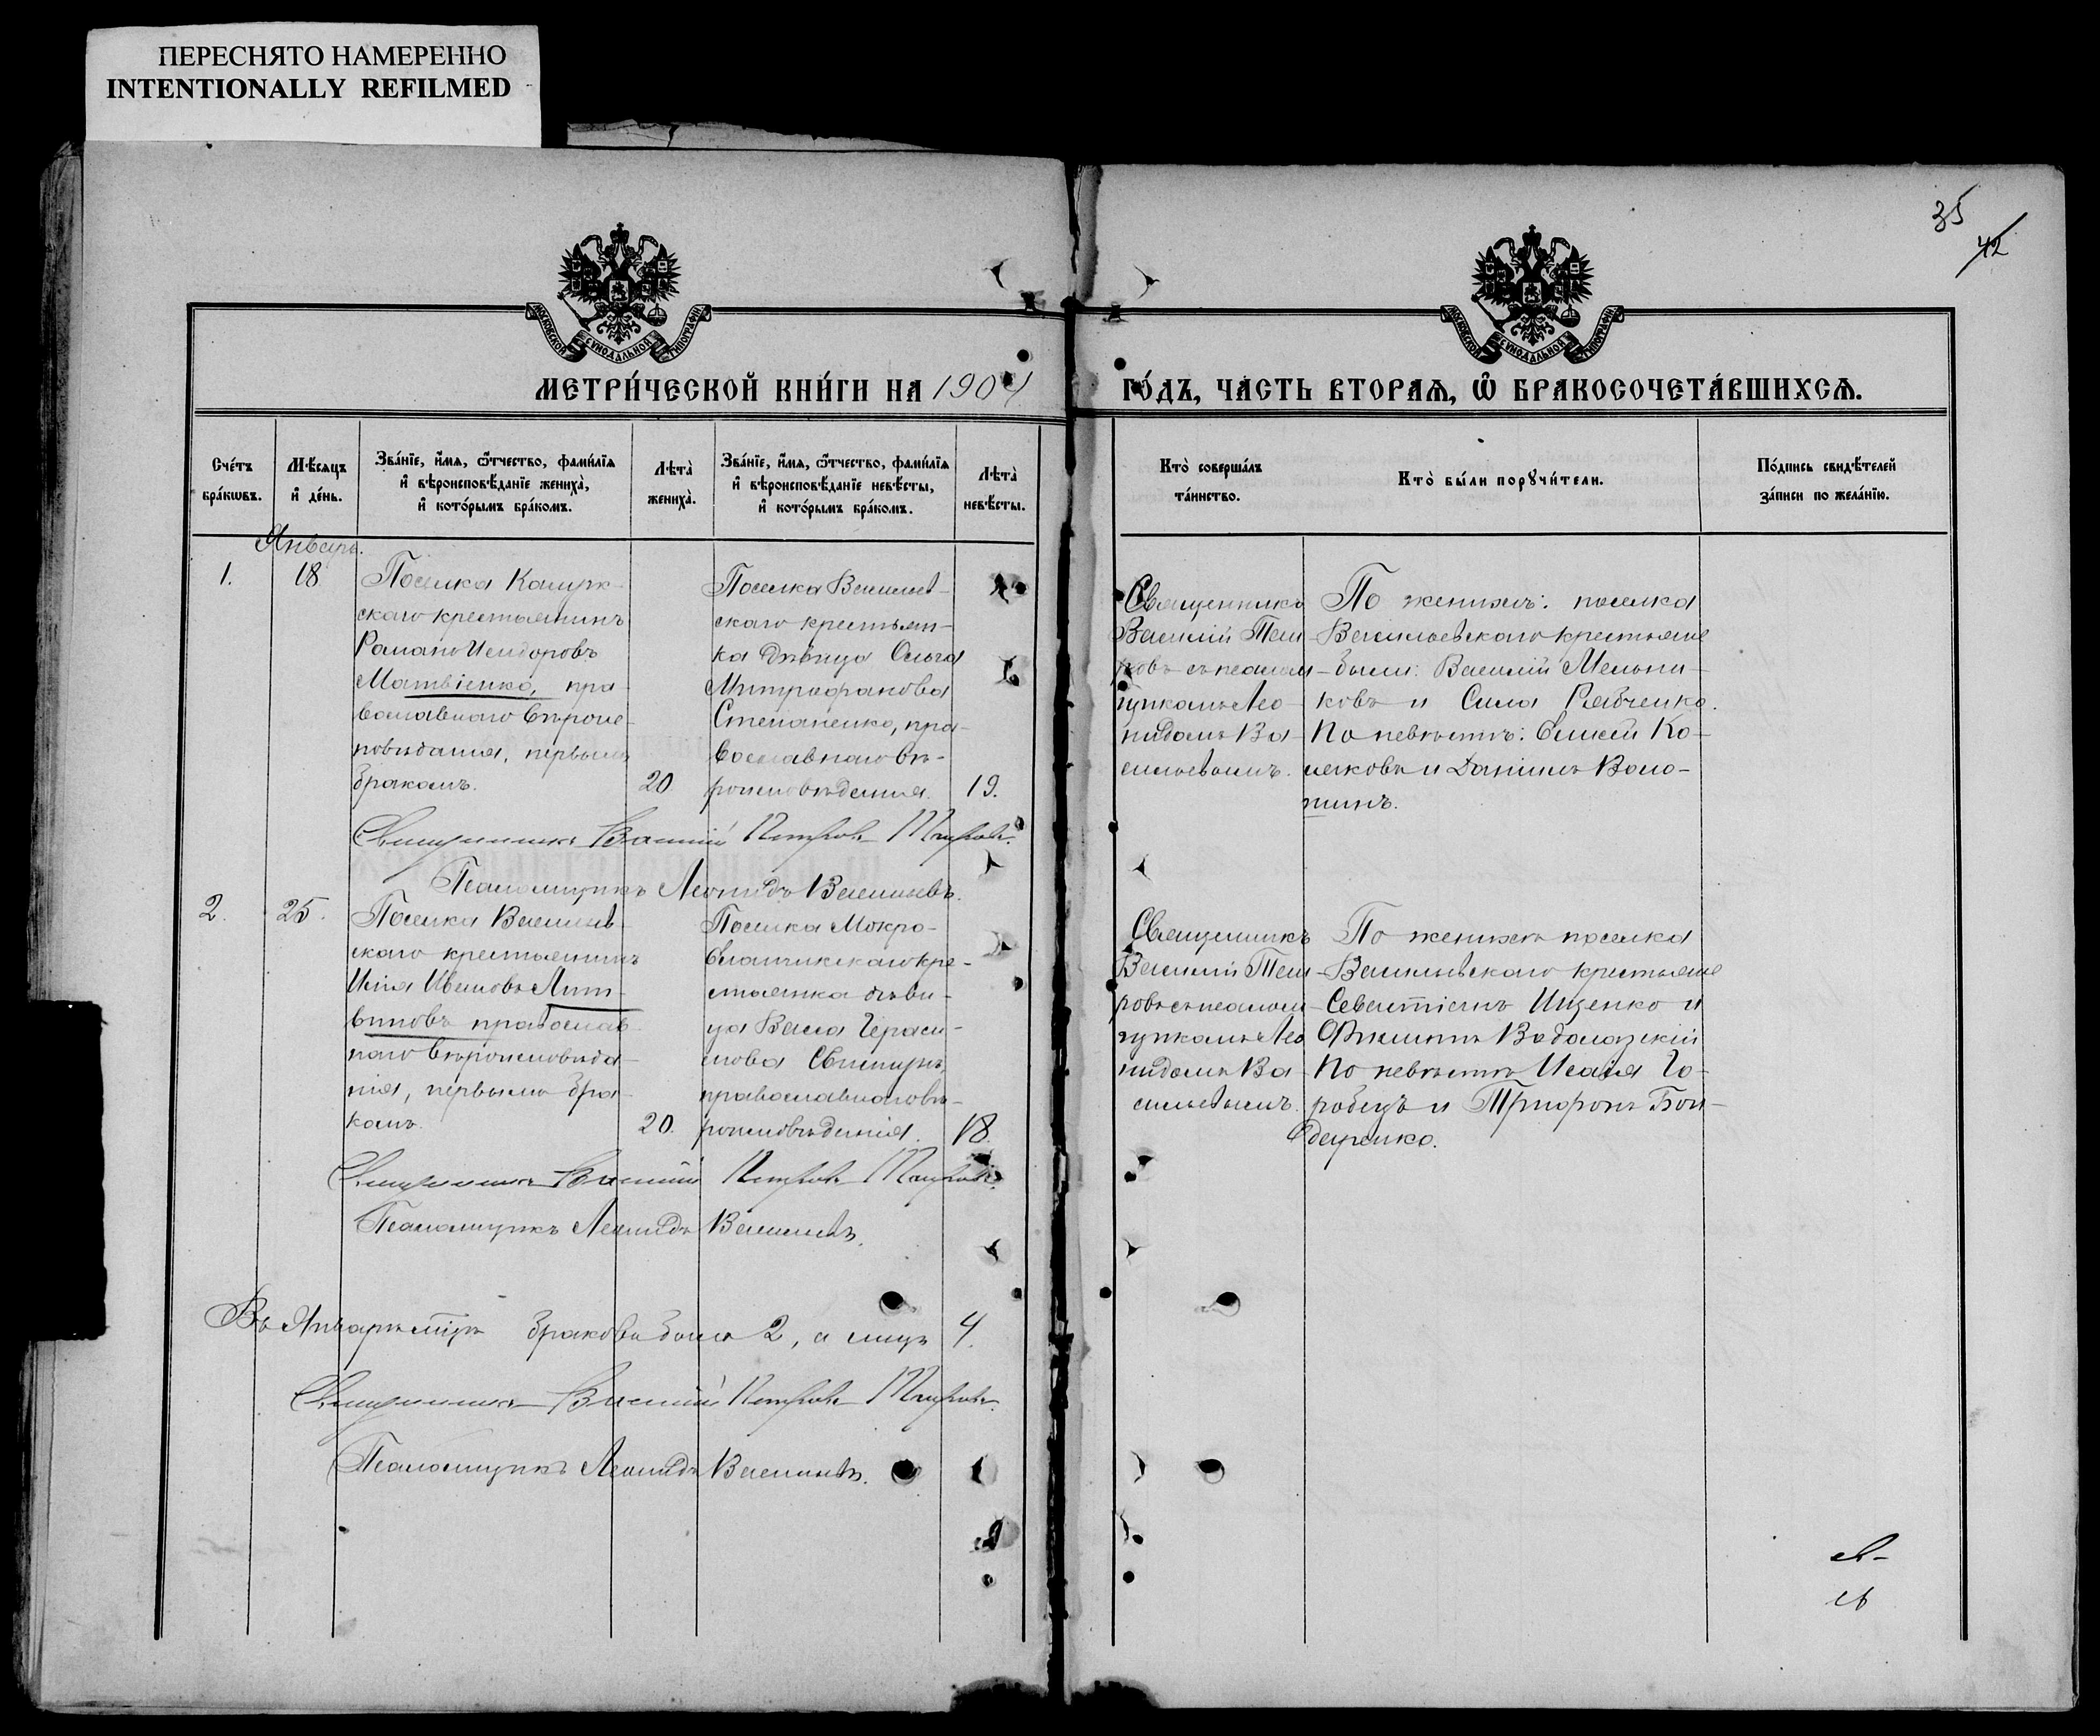 ПЕРЕСНЯТО НАМЕРЕННО
INTENTIONALLY REFILMED
35
42
МОСКОВСКОЙ СУНОДАЛЬНОЙ ТИПОГРАФІИ
МОСКОВСКОЙ СУНОДАЛЬНОЙ ТИПОГРАФІИ
МЕТРИ́ЧЕСКОЙ КНИ́ГИ НА 1904
ГО́ДЪ, ЧАСТЬ ВТОРАѦ, Ѿ БРАКОСОЧЕТА́ВШИХСѦ.
Сче́тъ бра́кѡвъ.
Мѣ́сѧцъ и҆ де́нь.
Зва́нїе, и҆́мѧ, ѻ҆́тчество, фами́лїѧ и҆ вѣроисповѣ́данїе жениха̀, и҆ кото́рымъ бра́комъ.
Лѣта̀ жениха̀.
Зва́нїе, и҆́мѧ, ѻ҆́тчество, фами́лїѧ и҆ вѣроисповѣ́данїе невѣ́сты, и҆ кото́рымъ бра́комъ.
Лѣта̀ невѣ́сты.
Кто̀ соверша́лъ та́инство.
Кто̀ бы́ли порꙋчи́тели.
По́дпись свидѣ́телей за́писи по жела́нїю.
Январь.
1.
18
Поселка Калуж-
скаго крестьянинъ
Романъ Исидоровъ
Матвіенко, пра-
вославнаго вѣроис-
повѣданія, первымъ
бракомъ.
20
Поселка Васильев-
скаго крестьян-
ка дѣвица Ольга
Митрофанова
Степаненко, пра-
вославнаго вѣ-
роисповѣданія.
19.
Священникъ
Василій Таи-
ровъ съ псалом-
щикомъ Лео-
нидомъ Ва-
сильевымъ.
По женихѣ: поселка
Васильевскаго крестьяне
были: Василій Мельни-
ковъ и Сила Рябченко.
По невѣстѣ:
и Даніилъ Воло-
шинъ.
Священникъ Василій Петровъ Таировъ.
Псаломщикъ Леонидъ Васильевъ.
2.
25.
Поселка Васильев-
скаго крестьянинъ
Илія Ивановъ Лит-
виновъ православ-
наго вѣроисповѣда-
нія, первымъ бра-
комъ.
20.
Поселка Мокро-
крестьянка дѣви-
ца Васса Гераси-
мова
православнаго вѣ-
роисповѣданія.
18.
Священникъ
Василій Таи-
ровъ съ псалом-
щикомъ Лео-
нидомъ Ва-
сильевымъ.
По женихѣ поселка
Васильевскаго крестьяне
Севастіанъ Ищенко и
Филиппъ Водолазскій
По невѣстѣ Исаія Го-
робецъ и Трифонъ Бон-
даренко.
Священникъ Василій Петровъ Таировъ.
Псаломщикъ Леонидъ Васильевъ.
Въ Январѣ мѣсяцѣ браковъ было 2, а лицъ 4.
Священникъ Василій Петровъ Таировъ.
Псаломщикъ Леонидъ Васильевъ.